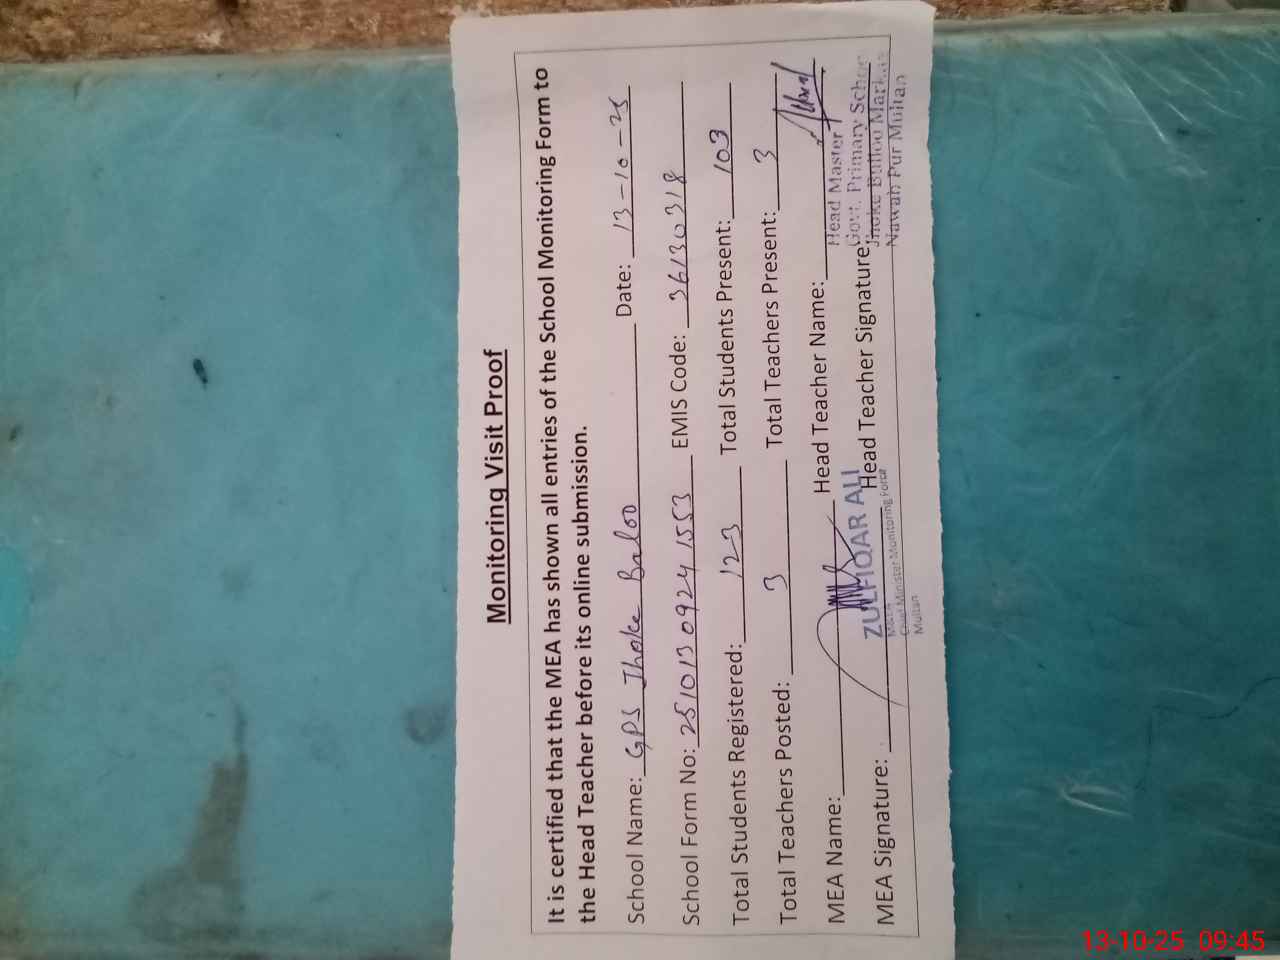 Monitoring Visit Proof
It is certified that the MEA has shown all entries of the School Monitoring Form to
the Head Teacher before its online submission.
School Name: GPS Jhoke Baloo Date: 13-10-25
School Form No: 251013 0924 1553 EMIS Code: 36130318
Total Students Registered: 123 Total Students Present: 103
Total Teachers Posted: 3 Total Teachers Present: 3
MEA Name: Head Teacher Name:
MEA Signature: Head Teacher Signature:
ZULFIQAR ALI
M&EA
Chief Minister Monitoring Force
Multan
Head Master
Govt. Primary School
Jhoke Bulloo Markaz
Nawab Pur Multan
13-10-25 09:45